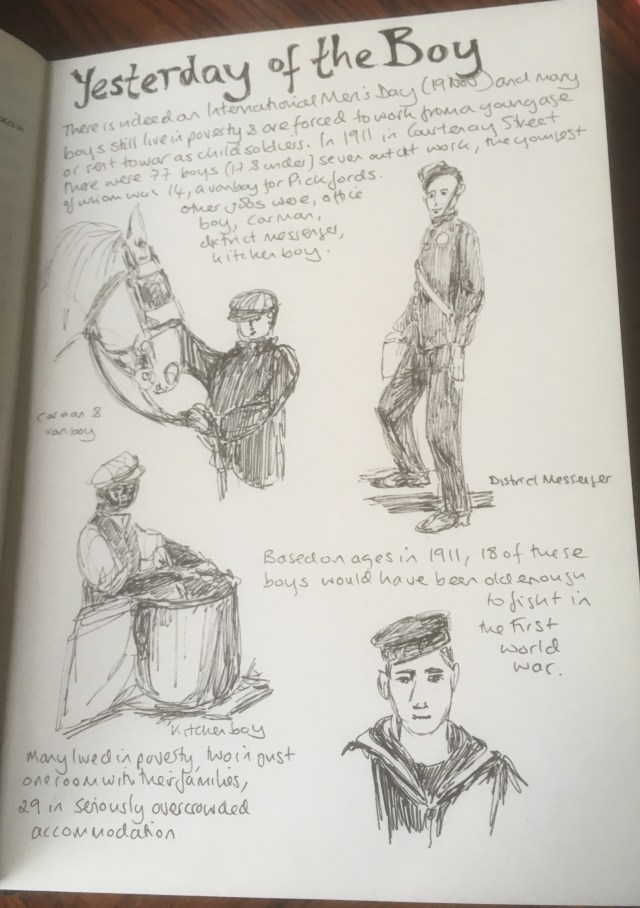 Yesterday of the Boy
There is indeed an International Men's Day (19 Nov) and many
boys still live in poverty & are forced to work from a young age
or sent to war as child soldiers. In 1911 in Courtenay Street
there were 77 boys (17 & under) seven out at work, the youngest
of whom was 14, a vanboy for Pickfords.
Other jobs were, office
boy, carman,
district messenger,
kitchen boy.
Carman &
vanboy
District Messenger
Based on ages in 1911, 18 of these
boys would have been old enough
to fight in
the First
world
war.
Kitchen boy
Many lived in poverty, two in just
one room with their families,
29 in seriously overcrowded
accommodation